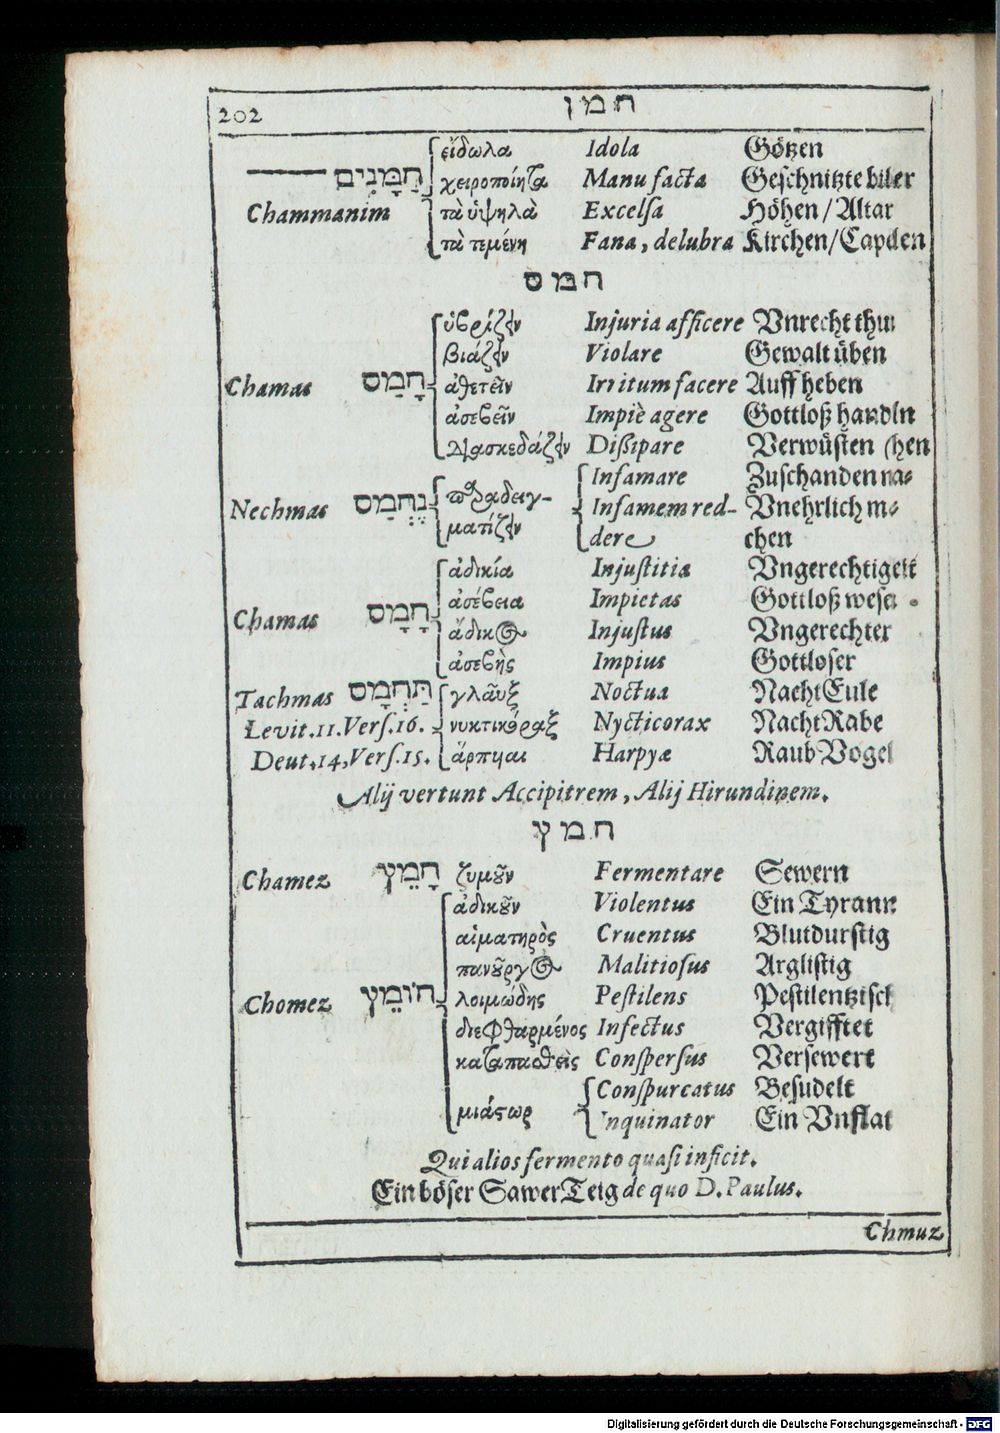 202 חמן
εἴδωλα Idola Götzen
—— חַמָּנִים χειροποίητα Manu facta Geschnitzte bilder
Chammanim τὰ ὑψηλὰ Excelsa Höhen / Altar
τὰ τεμένη Fana, delubra Kirchen / Capellen
חמס
ὑβρίζειν Injuria afficere Vnrecht thun
βιάζειν Violare Gewalt üben
Chamas חָמַס ἀθετεῖν Irritum facere Auff heben
ἀσεβεῖν Impiè agere Gottloß handln
διασκεδάζειν Dißipare Verwüsten (hen
Infamare Zuschanden ma-
Nechmas נֶחְמַס παραδειγ- Infamem red- Vnehrlich ma-
ματίζειν dere chen
ἀδικία Injustitia Vngerechtigelt
ἀσέβεια Impietas Gottloß wesen
Chamas חָמָס ἄδικος Injustus Vngerechter
ἀσεβὴς Impius Gottloser
Tachmas תַּחְמָס γλαῦξ Noctua NachtEule
Levit. 11. Vers. 16. νυκτικόραξ Nycticorax NachtRabe
Deut. 14, Vers. 15. ἅρπυιαι Harpyæ Raub Vogel
Alij vertunt Accipitrem, Alij Hirundinem.
חמץ
Chamez חָמֵץ ζυμοῦν Fermentare Sewern
ἀδικοῦν Violentus Ein Tyrann
αἱματηρὸς Cruentus Blutdurstig
πανοῦργος Malitiosus Arglistig
Chomez חוֹמֵץ λοιμώδης Pestilens Pestilentzisch
διεφθαρμένος Infectus Vergifftet
καταπασθεὶς Conspersus Versewert
Conspurcatus Besudelt
μιάστωρ Inquinator Ein Vnflat
Qui alios fermento quasi inficit.
Ein böser Sawer Teig de quo D. Paulus.
Chmuz
Digitalisierung gefördert durch die Deutsche Forschungsgemeinschaft - DFG